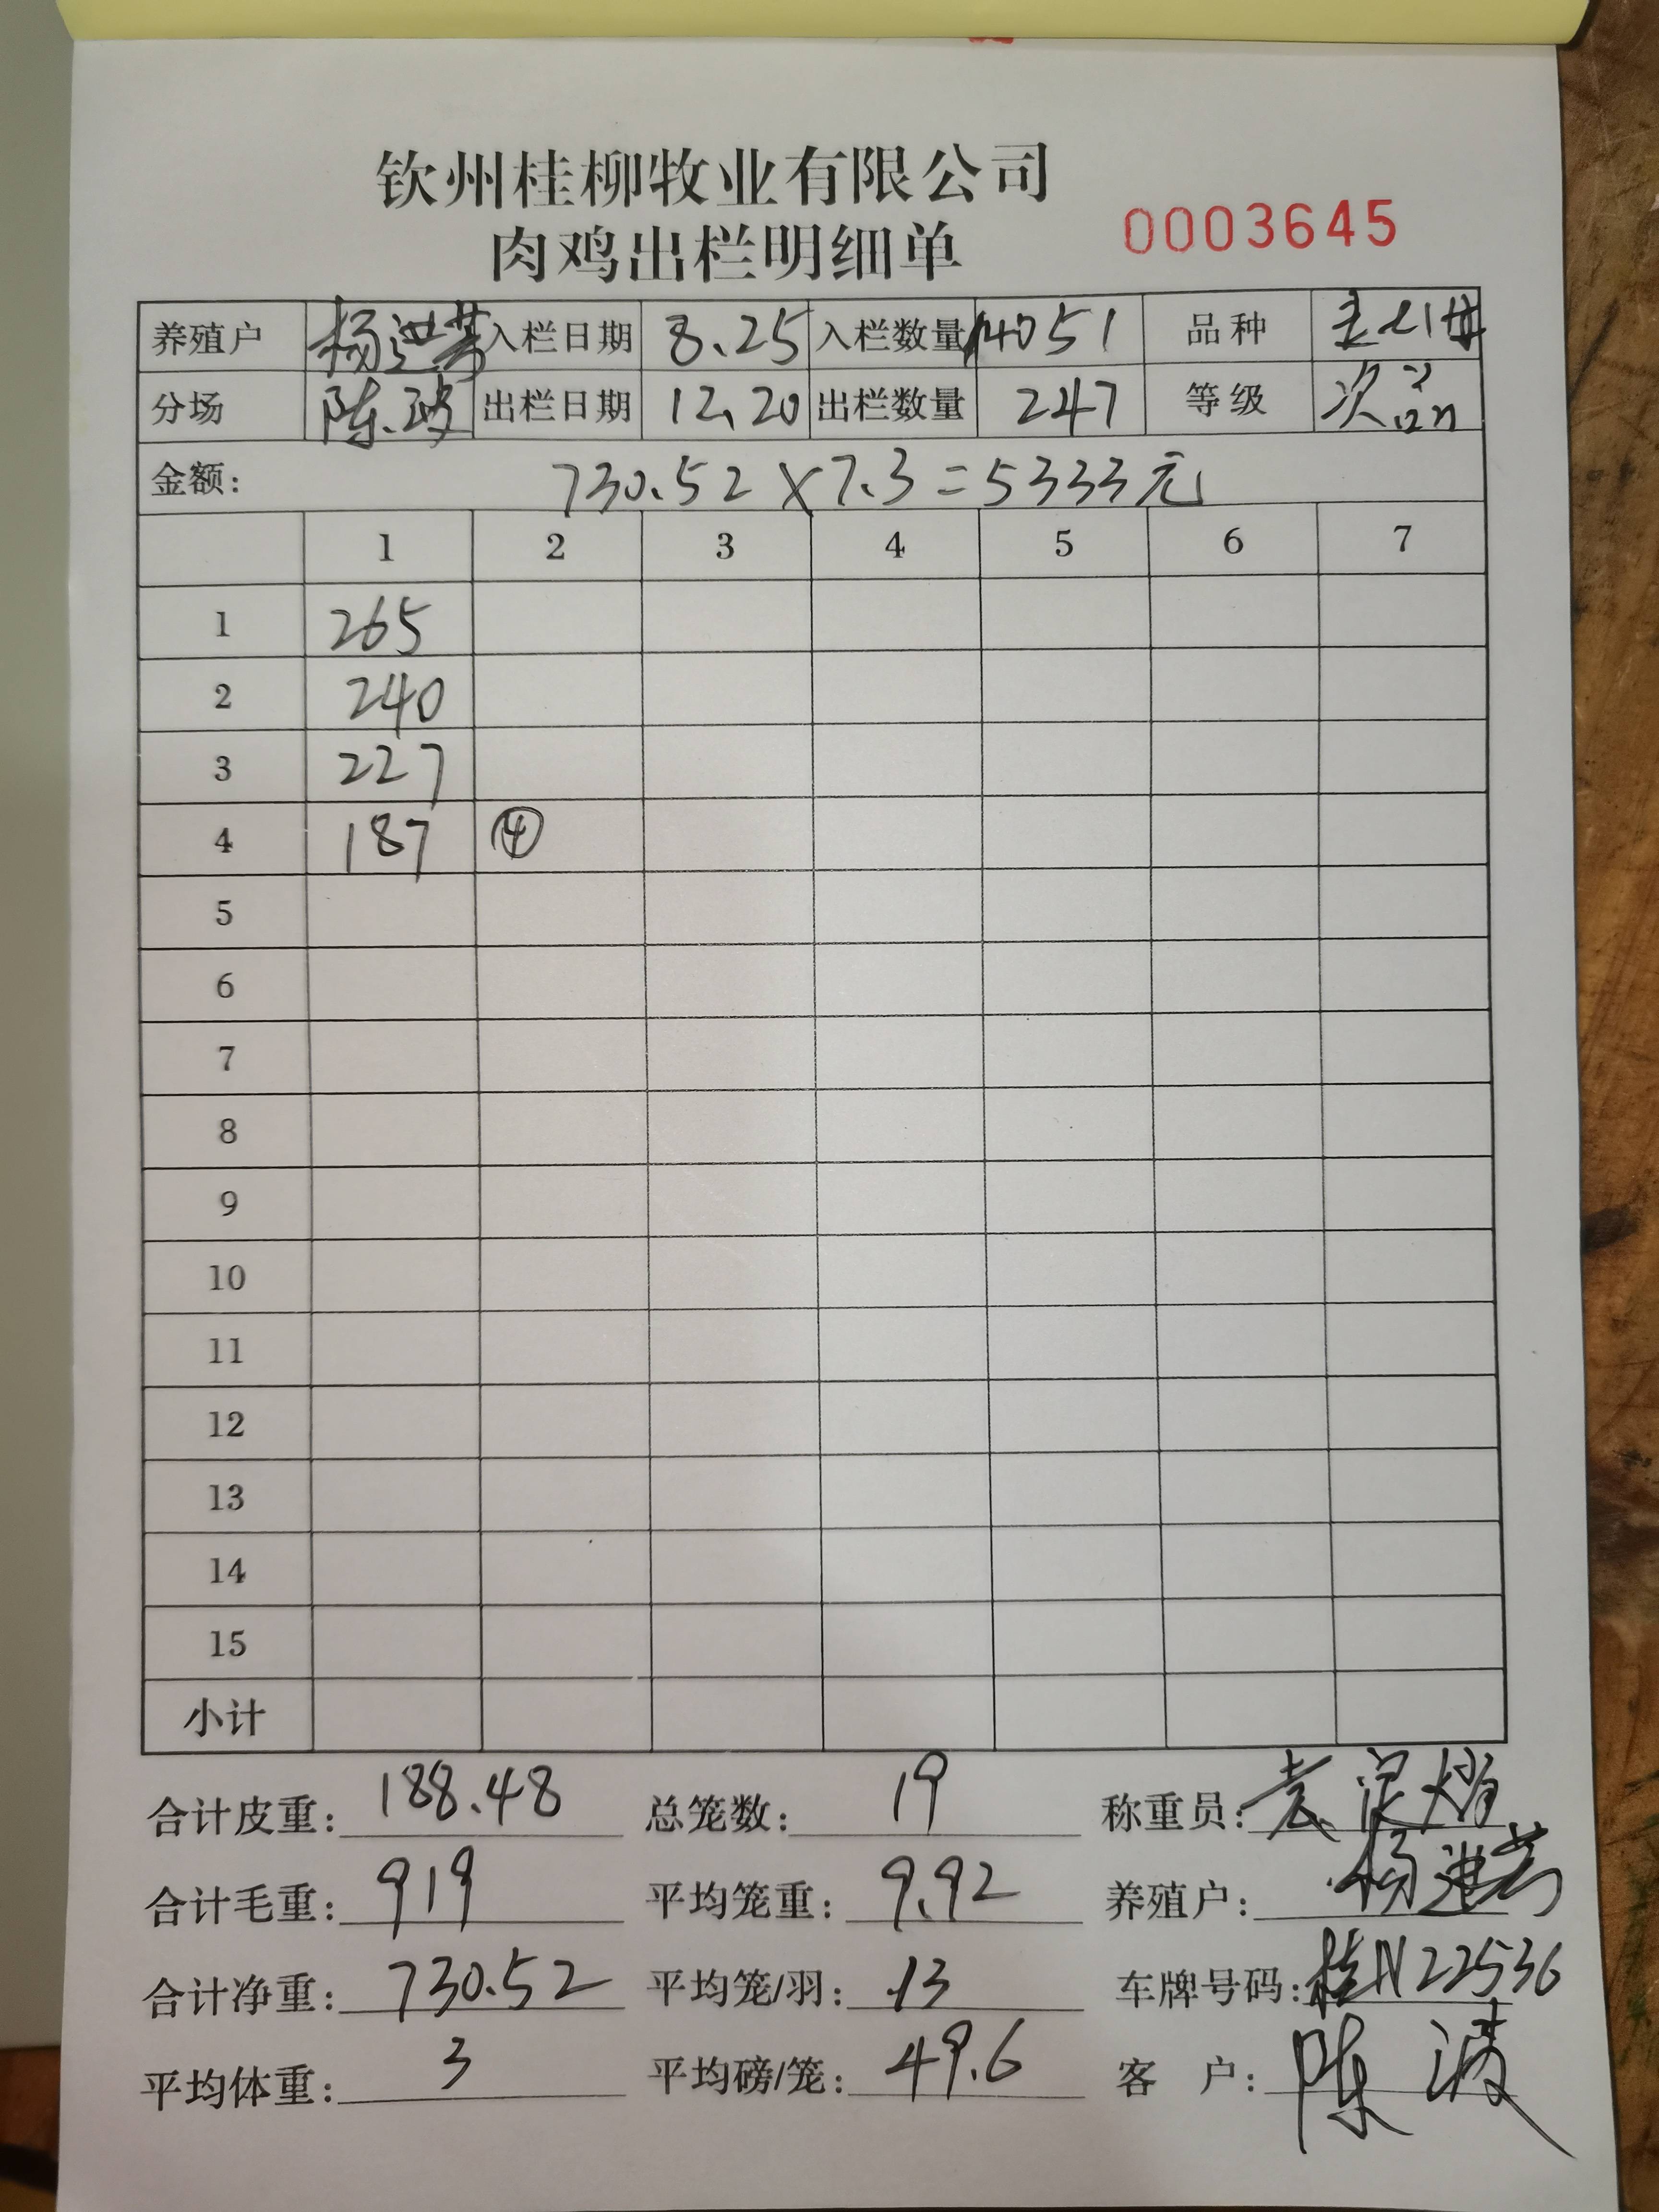 钦州桂柳牧业有限公司
肉鸡出栏明细单 0003645
养殖户 杨进芳 入栏日期 8.25 入栏数量 14051 品种
分场 陈波 出栏日期 12.20 出栏数量 247 等级 次品
金额: 730.52×7.3=5333元
1 2 3 4 5 6 7
1 265
2 240
3 227
4 187 ④
5
6
7
8
9
10
11
12
13
14
15
小计
合计皮重: 188.48 总笼数: 19 称重员:
合计毛重: 919 平均笼重: 9.92 养殖户: 杨进芳
合计净重: 730.52 平均笼/羽: 13 车牌号码: 桂N22536
平均体重: 3 平均磅/笼: 49.6 客户: 陈波